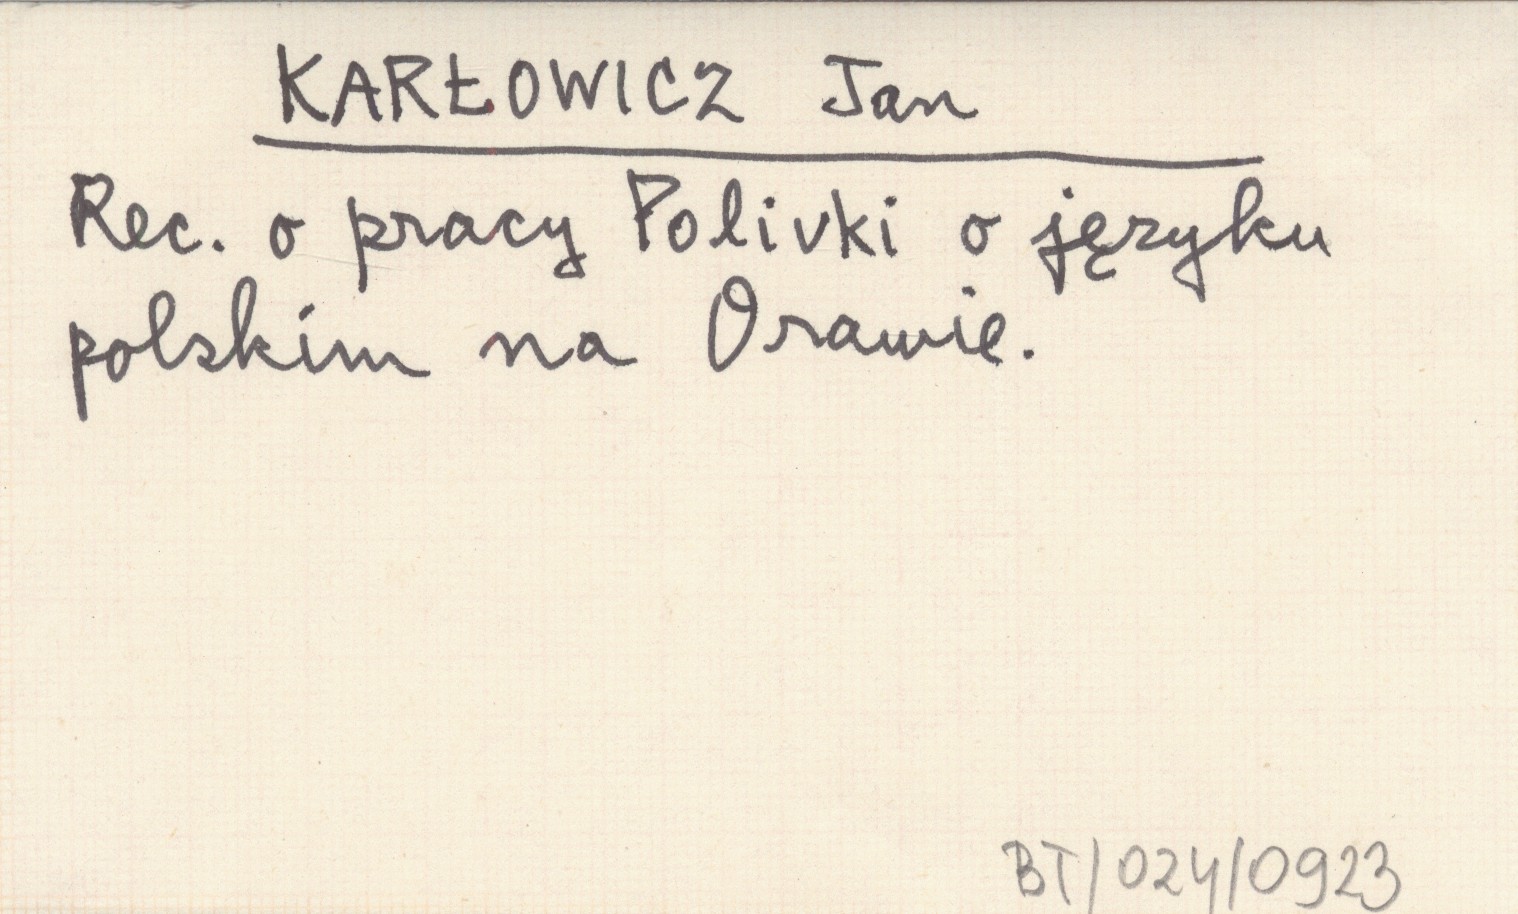 KARŁOWICZ Jan
Rec. o pracy Polivki o języku
polskim na Orawie.
BT/024/0923